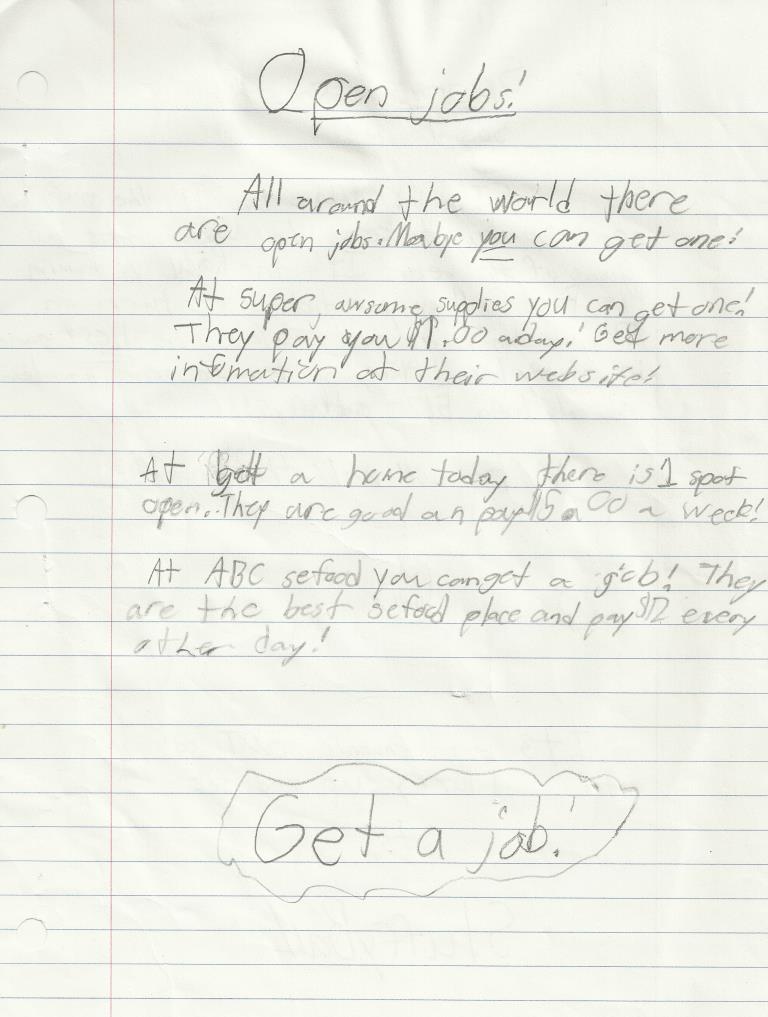 Open jobs!
All around the world there
are open jobs. Maybye you can get one!
At super, awsome, supplies you can get one!
They pay you $1.00 a day! Get more
infomation at their website!
At get a home today there is 1 spot
open. They are good an pay 15.00 a week!
At ABC sefood you can get a job! They
are the best sefood place and pay $12 every
other day!
Get a job!